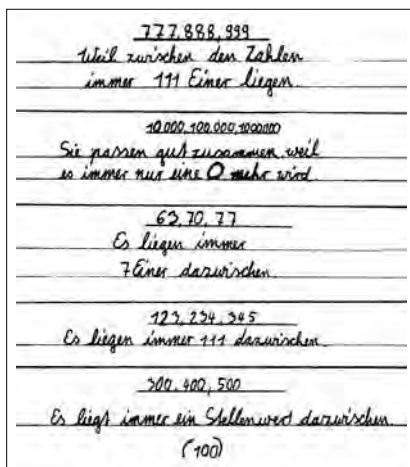 777, 888, 999
Weil zwischen den Zahlen
immer 111 Einer liegen.
10.000, 100.000, 1000000
Sie passen gut zusammen, weil
es immer nur eine 0 mehr wird
63, 70, 77
Es liegen immer
7 Einer dazwischen.
123, 234, 345
Es liegen immer 111 dazwischen.
300, 400, 500
Es liegt immer ein Stellenwert dazwischen.
(100)